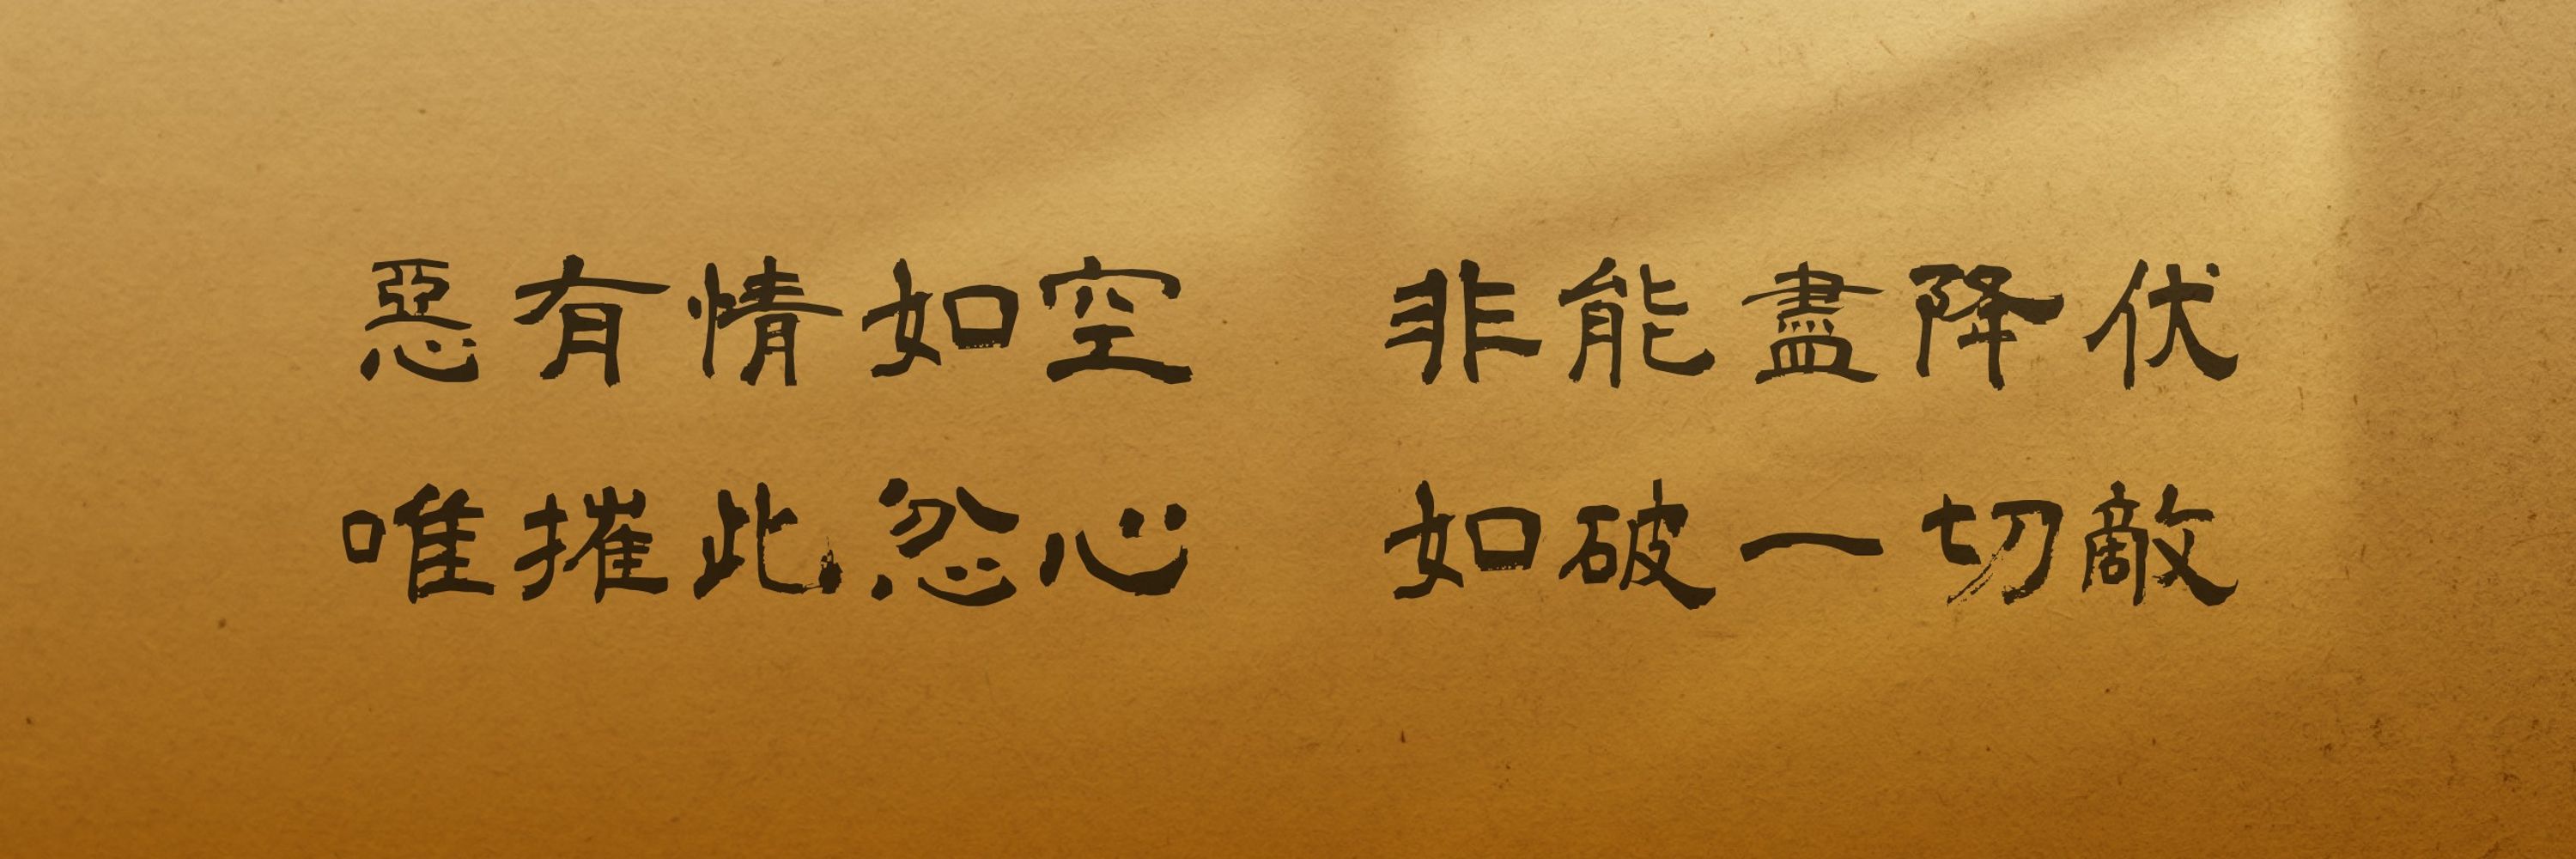 惡有情如空 非能盡降伏
唯摧此忿心 如破一切敵